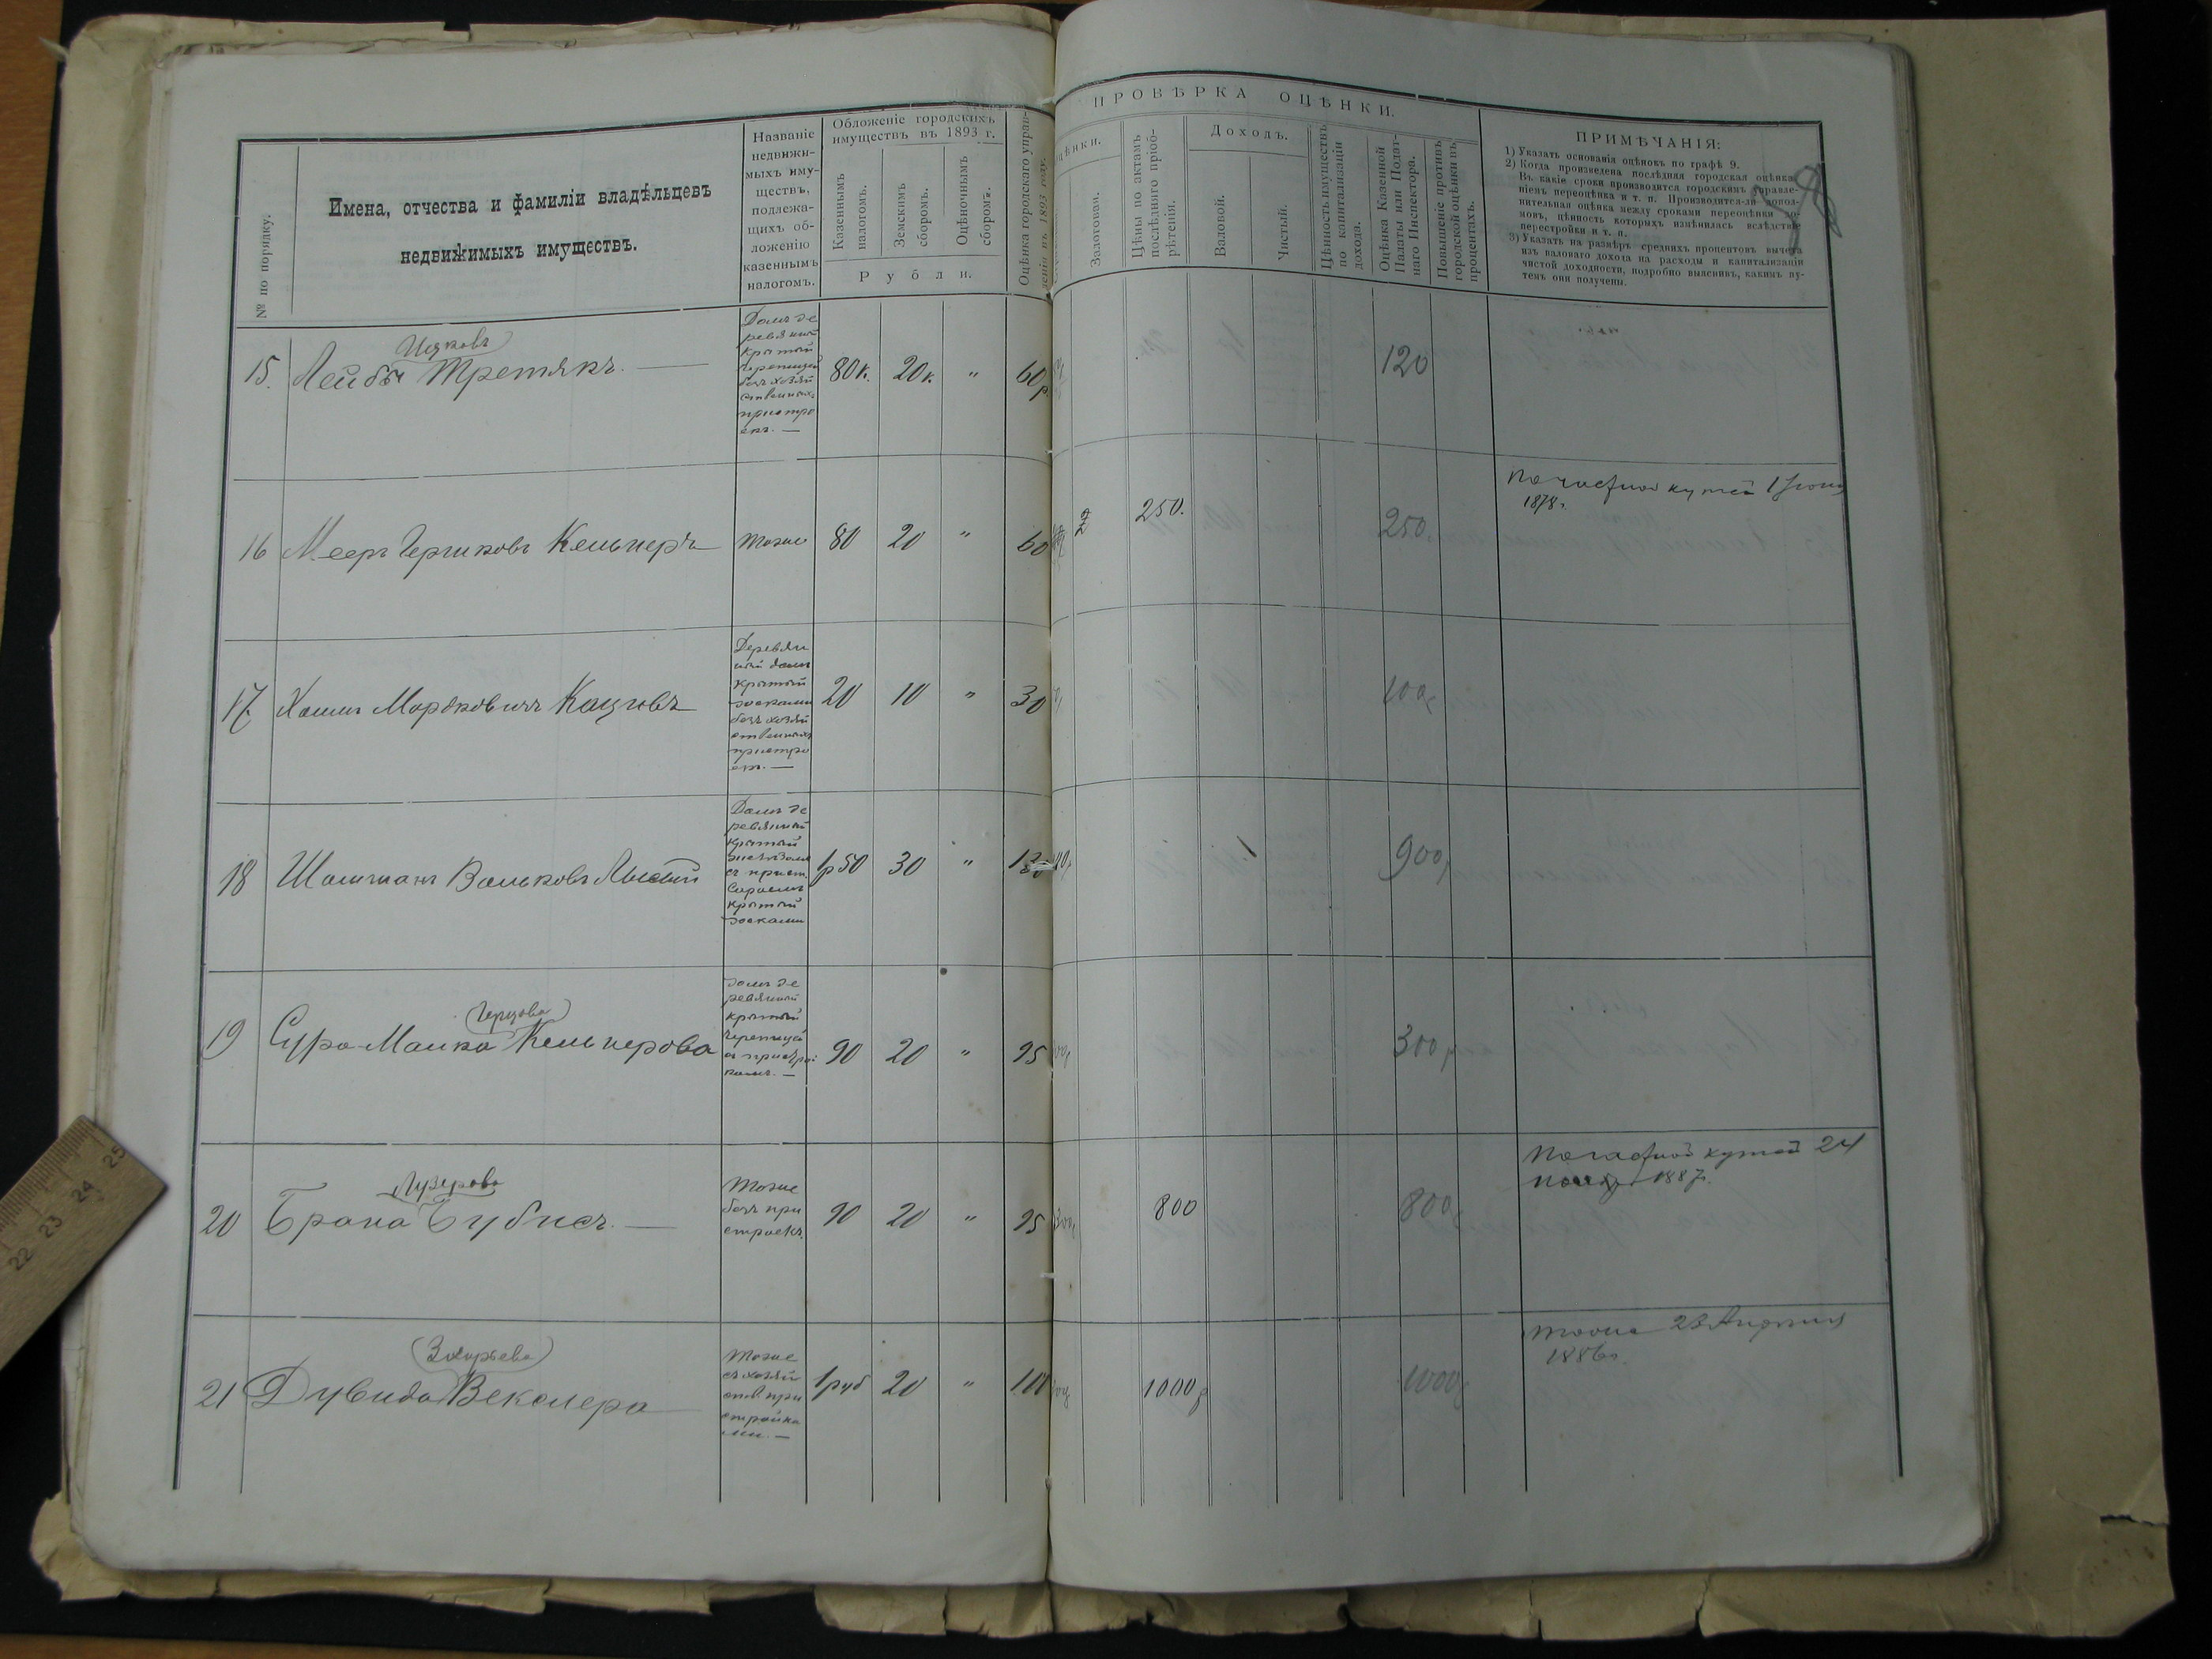 № по порядку.
Имена, отчества и фамиліи владѣльцевъ
недвижимыхъ имуществъ.
Названіе
недвижи-
мыхъ иму-
ществъ,
подлежа-
щихъ об-
ложенію
казеннымъ
налогомъ.
Обложеніе городскихъ
имуществъ въ 1893 г.
Казеннымъ
налогомъ.
Земскимъ
сборомъ.
Оцѣночнымъ
сборомъ.
Рубли.
Оцѣнка городского управ-
ленія въ 1893 году.
ПРОВѢРКА ОЦѢНКИ.
Залоговая.
Цѣны по актамъ
послѣдняго пріоб-
рѣтенія.
Доходъ.
Валовой.
Чистый.
Цѣнность имуществъ
по капитализаціи
дохода.
Оцѣнка Казенной
Палаты или Подат-
наго Инспектора.
Повышеніе противъ
городской оцѣнки въ
процентахъ.
ПРИМѢЧАНІЯ:
1) Указать основанія оцѣнокъ по графѣ 9.
2) Когда произведена послѣдняя городская оцѣнка.
Въ какіе сроки производится городскимъ управле-
ніемъ переоцѣнка и т. п. Производится-ли допол-
нительная оцѣнка между сроками переоцѣнки до-
мовъ, цѣнность которыхъ измѣнилась вслѣдствіе
перестройки и т. п.
3) Указать на размѣръ среднихъ процентовъ вычета
изъ валового дохода на расходы и капитализаціи
чистой доходности, подробно выяснивъ, какимъ пу-
темъ они получены.
Ицковъ
15. Лейбы Третякъ.
Домъ де
ревяный
крытый
черепицей
безъ хозяй
ственныхъ
пристро
екъ. —
80к. 20к. " 60р. 120
16 Мееръ Гершковъ Кельнеръ тоже 80 20 " 60 250. 250.
1878г.
17. Хаимъ Мордковичъ Кацювъ
Деревян
ный домъ
крытый
досками
безъ хозяй
ственныхъ
пристро
екъ. —
20 10 " 30 100р
18 Шлиманъ Вольковъ Лысый
Домъ де
ревянный
крытый
крытый
досками
1р50 30 " 900р
Герцова
19 Сура-Малка Кельнерова
домъ де
ревянный
крытый
черепицей
90 20 " 95 300р
Лузерова
20 Брана Бубнеъ. —
тоже
безъ при
строекъ.
90 20 " 95 800 800р
24
1887г.
(Захарьева)
21 Дувида Векслера
тоже
съ хозяй
ств. при
стройка
ми. —
1руб 20 " 100 1000р 1000р
тоже 23 Апрѣля
1886г.
22 23 24 25